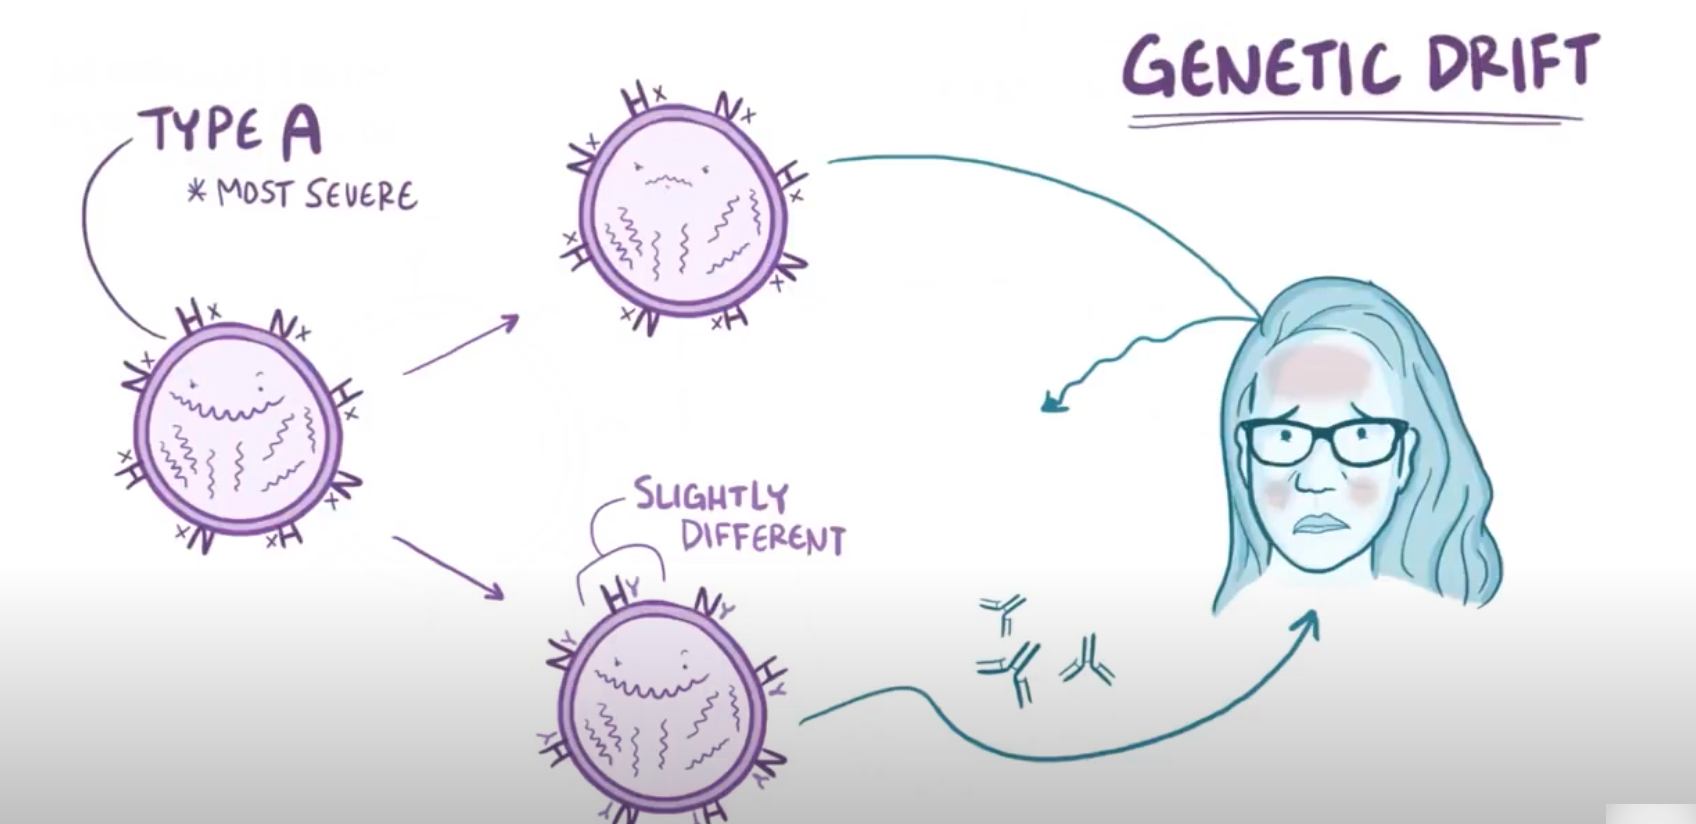 GENETIC DRIFT
TYPE A
* MOST SEVERE
Hx
Nx
Nx
Hx
Hx
Nx
Nx
Hx
Hx
Nx
Nx
Hx
Hx
Nx
Nx
Hx
SLIGHTLY
DIFFERENT
HY
NY
NY
HY
HY
NY
NY
H